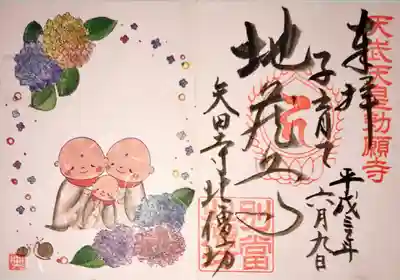 天武天皇勅願寺
奉拝
平成三十年六月九日
子育て
地蔵
矢田寺北僧坊
別當